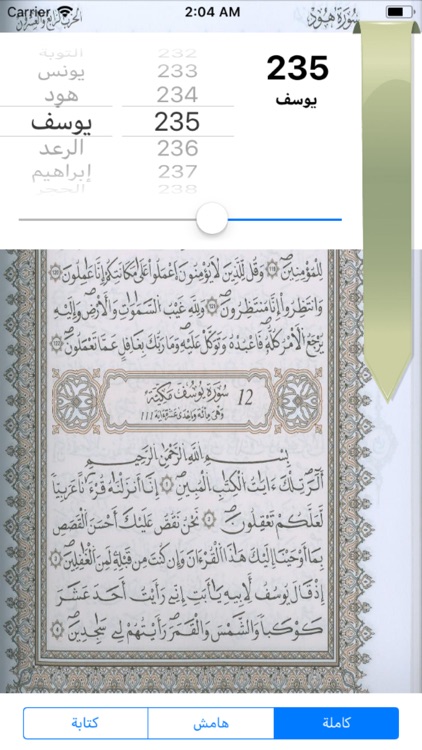 Carrier 2:04 AM
سورة هود
التوبة 232
يونس 233
هود 234
يوسف 235
الرعد 236
إبراهيم 237
الحجر 238
235
يوسف
لِلْمُؤْمِنِينَ وَقُل لِّلَّذِينَ لَا يُؤْمِنُونَ اعْمَلُوا عَلَىٰ مَكَانَتِكُمْ إِنَّا عَٰمِلُونَ
وَانتَظِرُوا إِنَّا مُنتَظِرُونَ وَلِلَّهِ غَيْبُ السَّمَٰوَٰتِ وَالْأَرْضِ وَإِلَيْهِ
يُرْجَعُ الْأَمْرُ كُلُّهُ فَاعْبُدْهُ وَتَوَكَّلْ عَلَيْهِ وَمَا رَبُّكَ بِغَٰفِلٍ عَمَّا تَعْمَلُونَ
12 سُورَةُ يُوسُفَ مَكِّيَّة
وهي مائة وإحدى عشرة آية 111
بِسْمِ اللَّهِ الرَّحْمَٰنِ الرَّحِيمِ
الٓر تِلْكَ ءَايَٰتُ الْكِتَٰبِ الْمُبِينِ إِنَّا أَنزَلْنَٰهُ قُرْءَٰنًا عَرَبِيًّا
لَّعَلَّكُمْ تَعْقِلُونَ نَحْنُ نَقُصُّ عَلَيْكَ أَحْسَنَ الْقَصَصِ
بِمَا أَوْحَيْنَا إِلَيْكَ هَٰذَا الْقُرْءَانَ وَإِن كُنتَ مِن قَبْلِهِ لَمِنَ الْغَٰفِلِينَ
إِذْ قَالَ يُوسُفُ لِأَبِيهِ يَٰأَبَتِ إِنِّي رَأَيْتُ أَحَدَ عَشَرَ
كَوْكَبًا وَالشَّمْسَ وَالْقَمَرَ رَأَيْتُهُمْ لِي سَٰجِدِينَ
كتابة هامش كاملة